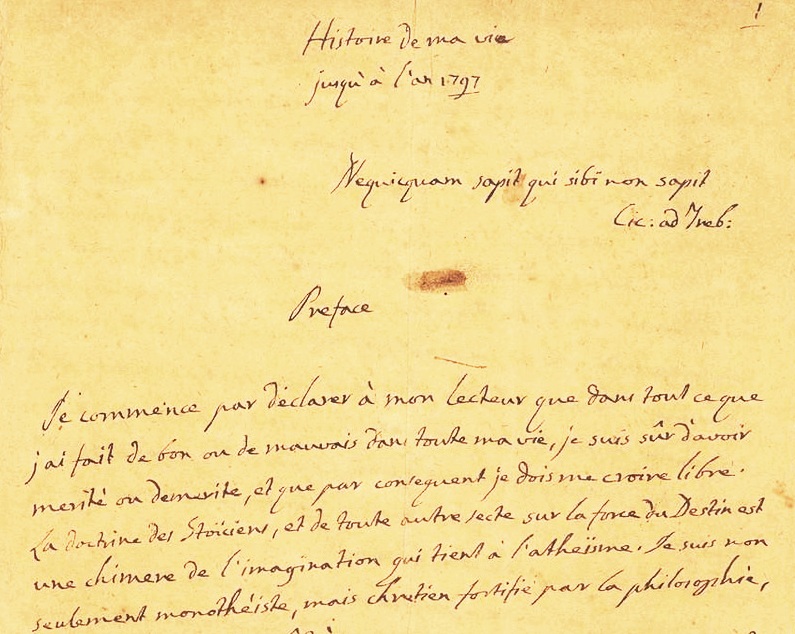 !
Histoire de ma vie
jusqu'à l'an 1797
Nequicquam sapit qui sibi non sapit
Cic: ad Treb:
Preface
Je commence par déclarer à mon lecteur que dans tout ce que
j'ai fait de bon ou de mauvais dans toute ma vie, je suis sûr d'avoir
merité ou demerite, et que par consequent je dois me croire libre.
La doctrine des Stoïciens, et de toute autre secte sur la force du Destin est
une chimere de l'imagination qui tient à l'atheïsme. Je suis non
seulement monothéiste, mais chretien fortifié par la philosophie,